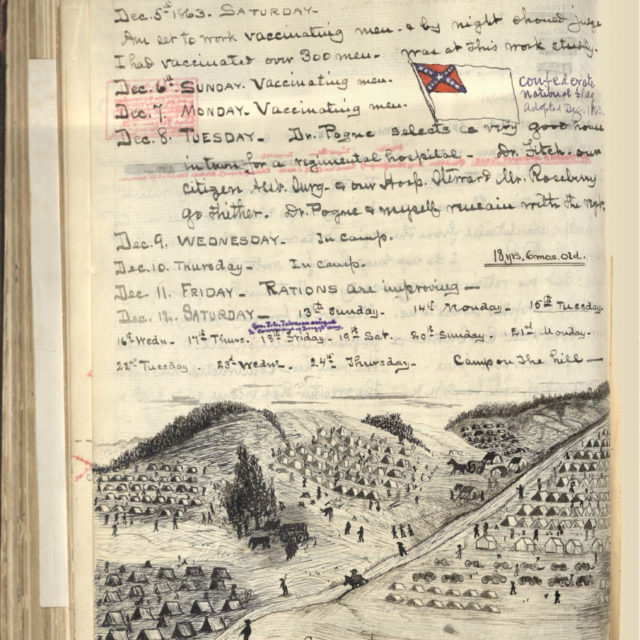 Dec. 5th 1863. SATURDAY-
Am set to work vaccinating men & by night should judge
I had vaccinated over 300 men. was at this work
Dec. 6th SUNDAY. Vaccinating men.
Dec. 7. MONDAY- Vaccinating men.
Confederate
National flag
Adopted Dec.
Dec. 8. TUESDAY- Dr. Pogue selects a very good house
in town for a regimental hospital- Dr. Fitch, our
citizen Asst. Surg. & our Hosp. Steward Mr. Rosebury
go thither. Dr. Pogue & myself remain with the
Dec. 9. WEDNESDAY- In camp.
Dec. 10. Thursday- In camp.
18 yrs, 6 mos. old.
Dec. 11. FRIDAY- RATIONS are improving-
Dec. 12. SATURDAY- 13th Sunday. 14th Monday- 15th Tuesday.
16th Wedn- 17th Thurs. 18th Friday- 19th Sat. 20th Sunday- 21st Monday-
22nd Tuesday- 23rd Wedn- 24th Thursday- Camp on the hill-